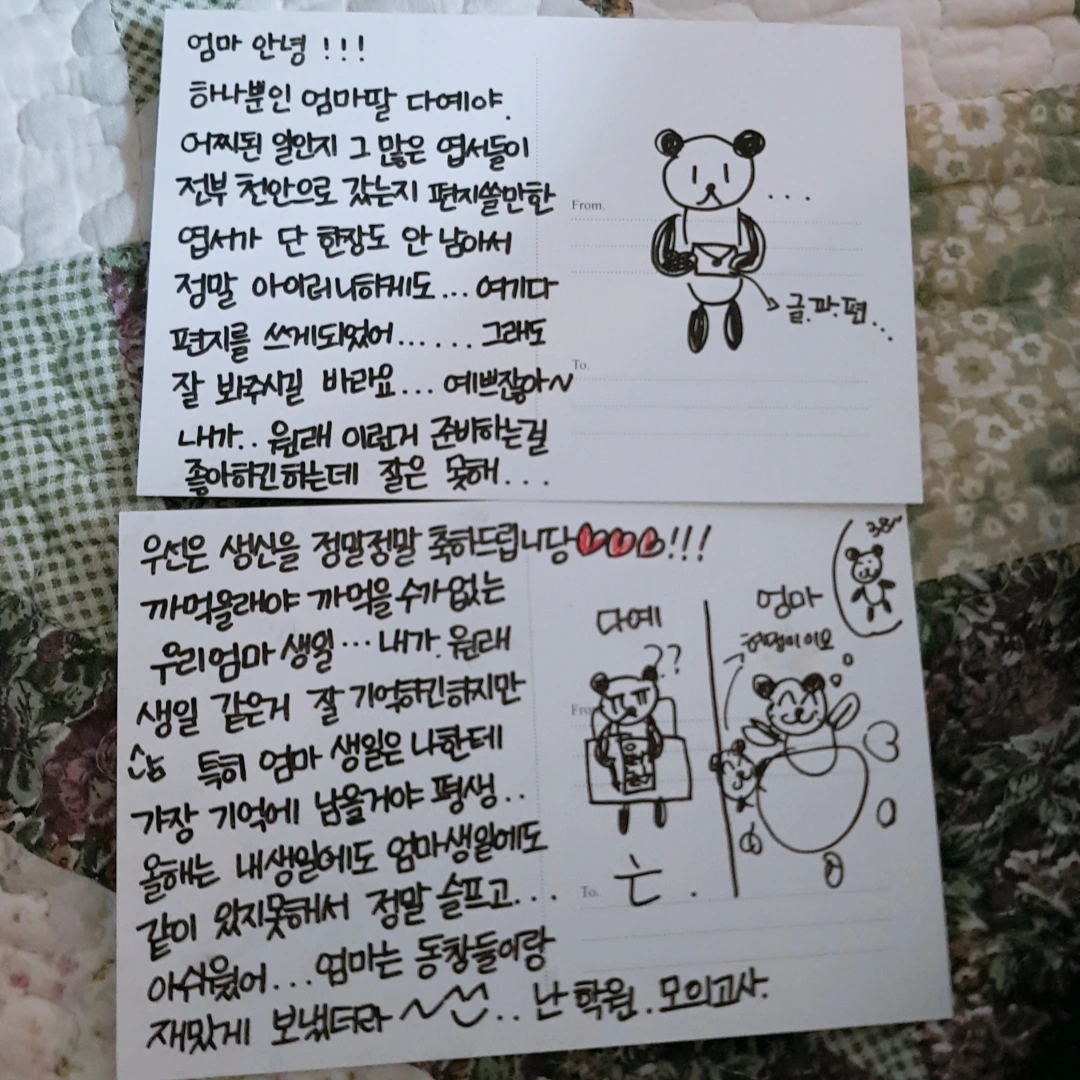 엄마 안녕 !!!
하나뿐인 엄마딸 다예야.
어찌된 일인지 그 많은 엽서들이
전부 천안으로 갔는지 편지쓸만한
엽서가 단 한장도 안 남아서
정말 아이러니하게도... 여기다
편지를 쓰게되었어...... 그래도
잘 봐주시길 바라요... 예쁘잖아~
내가.. 원래 이런거 준비하는걸
좋아하긴하는데 잘은 못해...
From.
...
글.과.편...
To.
우선은 생신을 정말정말 축하드립니당!!!
까먹을래야 까먹을수가없는
우리엄마 생일... 내가. 원래
생일 같은거 잘 기억하긴하지만
특히 엄마 생일은 나한테
가장 기억에 남을거야 평생..
올해는 내생일에도 엄마생일에도
같이 있지못해서 정말 슬프고...
아쉬웠어... 엄마는 동창들이랑
재밌게 보냈더라~.. 난 학원.. 모의고사.
다예
??
엄마
이모
To.